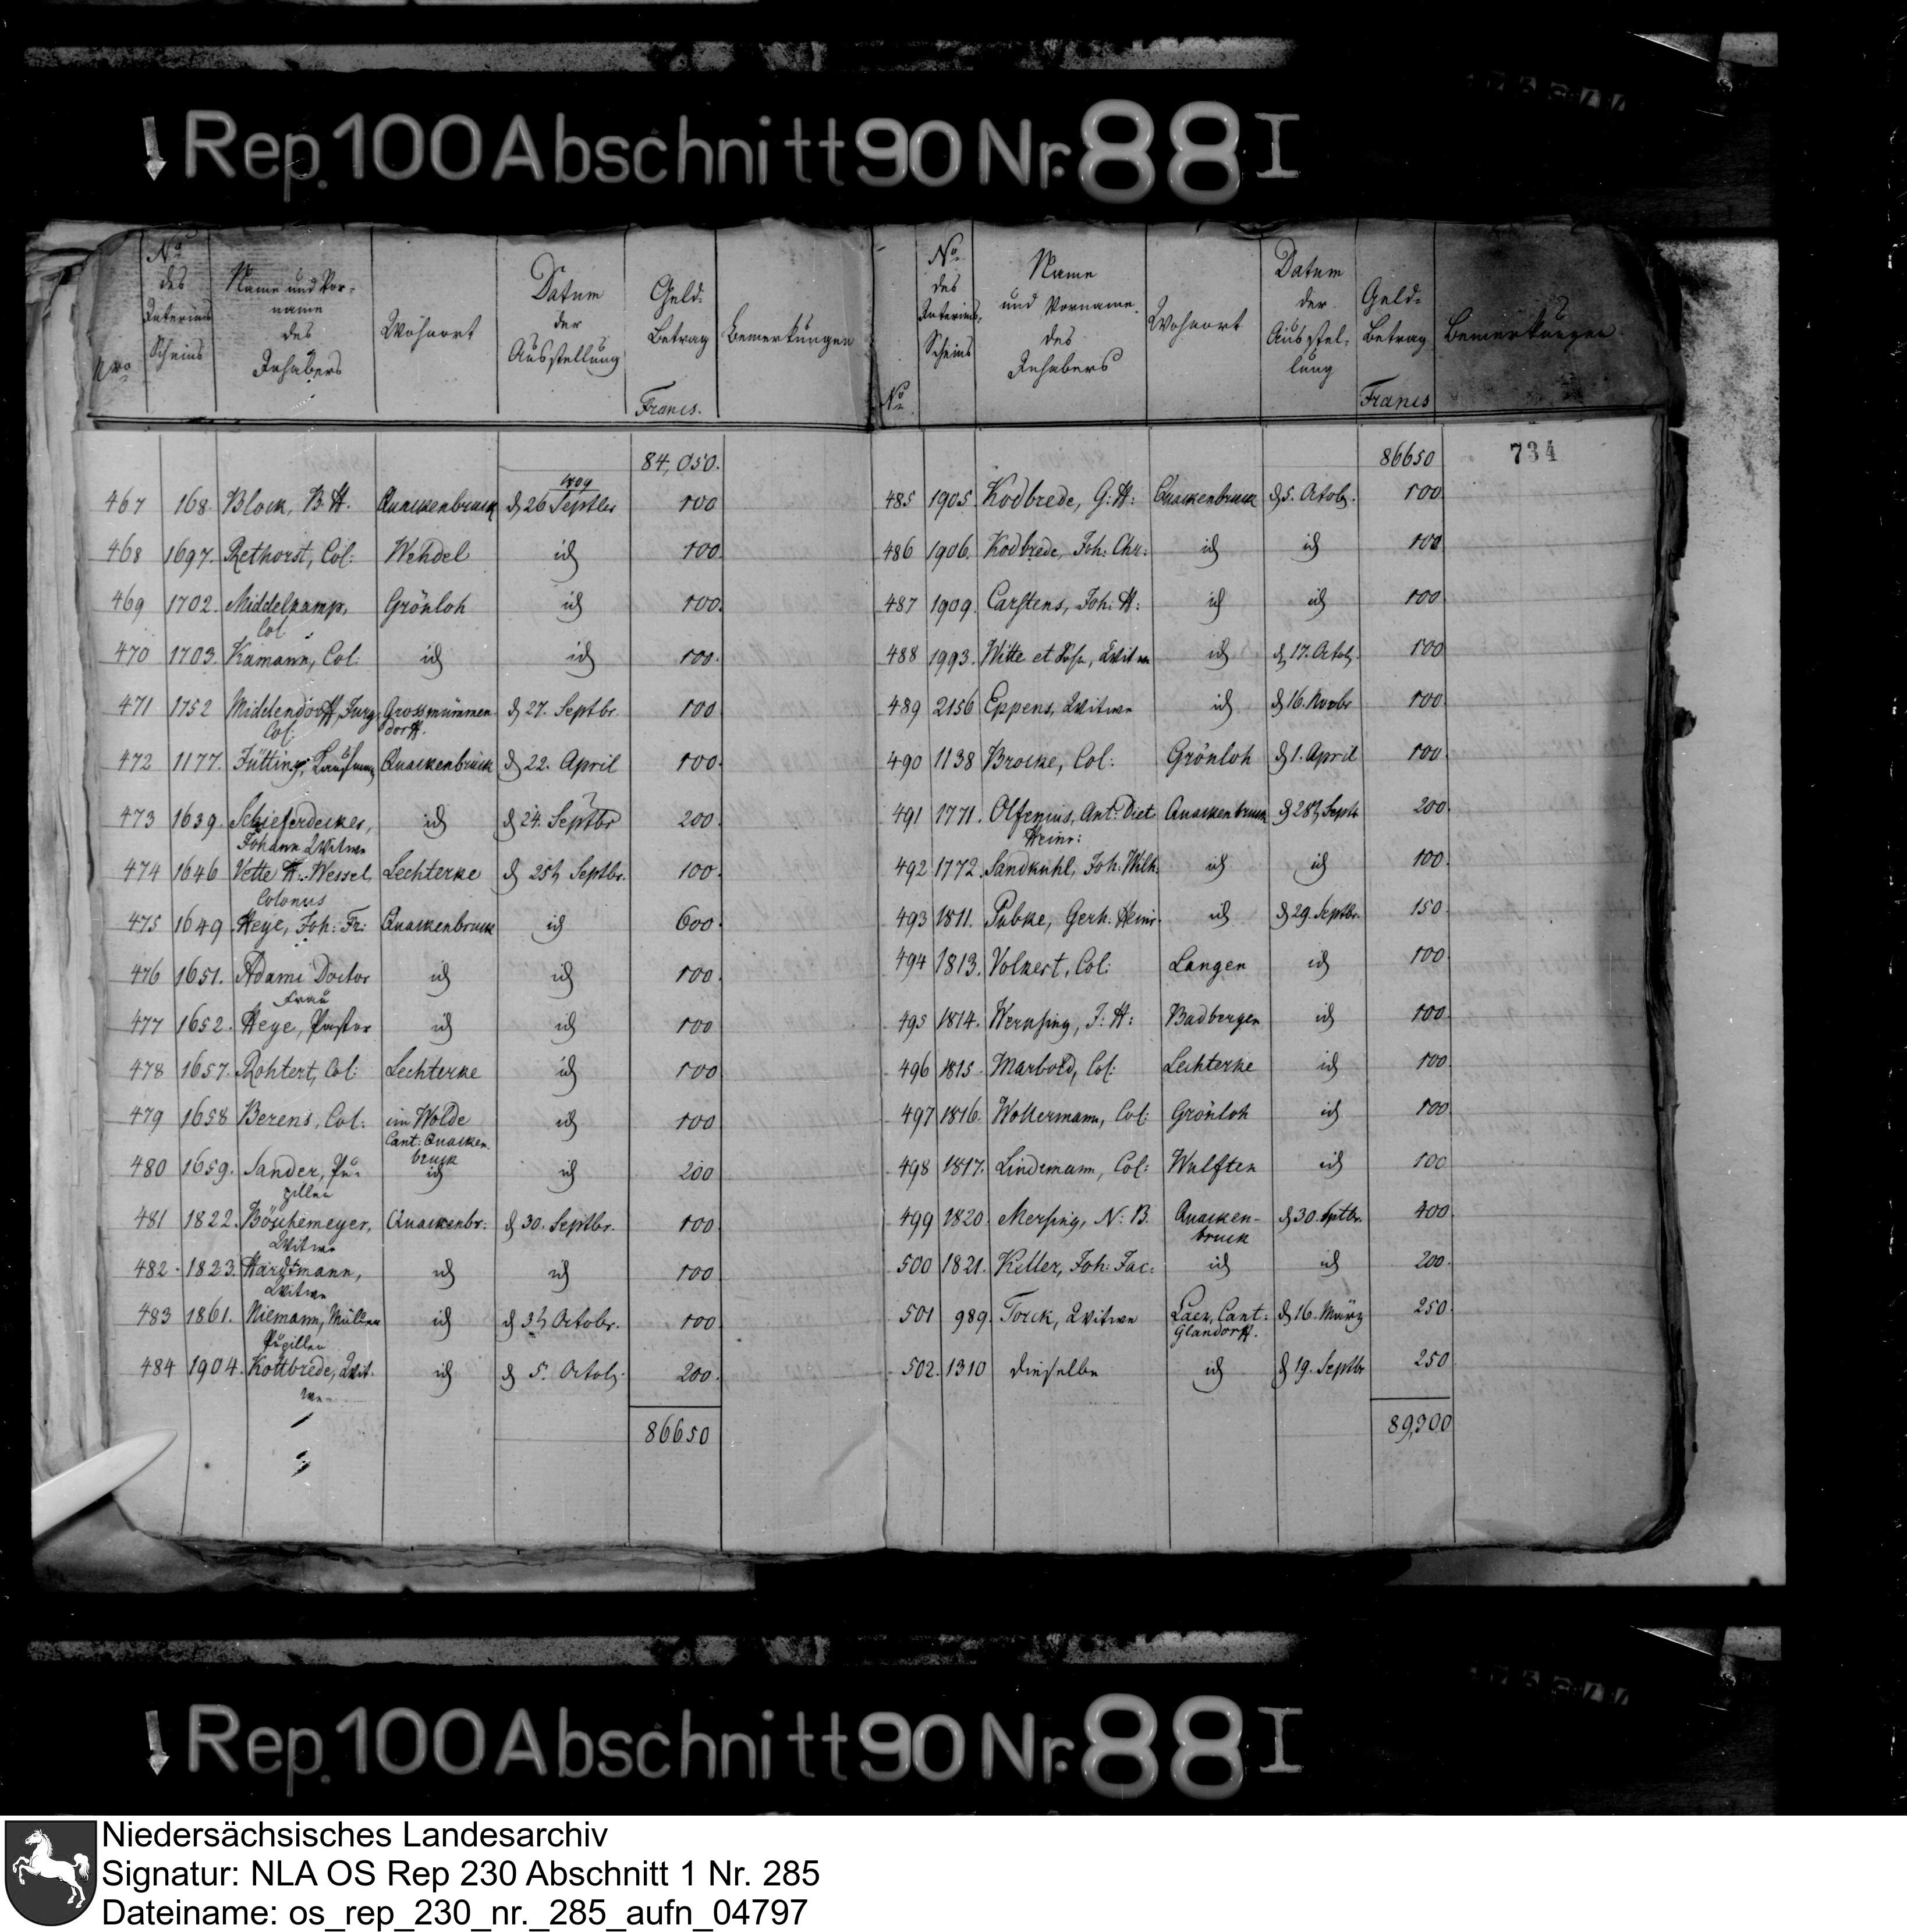 Rep. 100 Abschnitt 90 Nr. 88 I
Nro
No des Interims Scheins
Name und Vorname des Inhabers
Wohnort
Datum der Ausstellung
Geld-Betrag
Francs.
Bemerkungen
84,050.
1809
467 168 Block, B. H. Quackenbruck d 26 Septbr 100
468 1697. Rethorst, Col: Wehdel id 100.
469 1702. Middelkamp, Grönloh id 100.
Col
470 1703. Kamann, Col: id id 100.
471 1752 Middendorff, Jurg: Grossmimmen d 27. Septbr. 100
Col: dorff.
472 1177. Fütting, Kaufmann Quackenbrück d 22. April 100.
473 1639. Schieferdecker, id d 24. Septbr 200.
Johann Witwe
474 1646 Vette H. Wessel, Lechterke d 25t Septbr. 100.
Colonus
475 1649 Heye, Joh: Fr: Quackenbruck id 600.
476 1651. Adami Doctor id id 100.
Frau
477 1652. Heye, Pastor id id 100
478 1657. Röhtert, Col: Lechterke id 100
479 1658 Berens, Col: im Wolde id 100
Cant: Quacken
bruck
480 1659. Sander, Pu- id id 200
pillen
481 1822. Böschemeyer, Quackenbr: d 30. Septbr. 100.
Witwe
482 1823. Hardtmann, id id 100
Witwe
483 1861. Niemann, Müllers id d 3t Octobr. 100
Pupillen
484 1904. Kottbrede, Wit- id d 5. Octob. 200.
we
86650
No
No des Interims-Scheins
Name und Vorname des Inhabers
Wohnort
Datum der Ausstellung
Geld-Betrag
Francs
Bemerkungen
86650 734
485 1905. Kodbrede, G: H: Quackenbruck d 5. Octob. 100
486 1906. Kodbrede, Joh: Chr: id id 100
487 1909. Carstens, Joh: H: id id 100
488 1993. Witte et Witwe id d 17. Octob. 100
489 2156 Eppens, Witwe id d 16. Novbr 100
490 1138 Brocke, Col: Grönloh d 1. April 100
491 1771. Olfenius, Ant: Diet Quackenbruck d 28t Septb 200
Heinr:
492 1772. Sandkuhl, Joh: Wilh: id id 100
493 1811. Pubke, Gerh. Heinr. id d 29. Septbr. 150
494 1813. Volkert, Col: Langen id 100
495 1814. Wernsing, J: H: Badbergen id 100.
496 1815 Marbold, Col: Lechterke id 100
497 1816. Woltermann, Col: Grönloh id 100
498 1817. Lindemann, Col: Wulften id 100
499 1820 Mersing, N: B. Quacken- d 30. Septbr. 400
bruck
500 1821. Keller, Joh: Jac: id id 200.
501 989. Torck, Witwe Laer, Cant: d 16. März 250
Glandorff.
502. 1310 dieselbe id d 19. Septbr 250
89,300
Rep. 100 Abschnitt 90 Nr. 88 I
Niedersächsisches Landesarchiv
Signatur: NLA OS Rep 230 Abschnitt 1 Nr. 285
Dateiname: os_rep_230_nr._285_aufn_04797